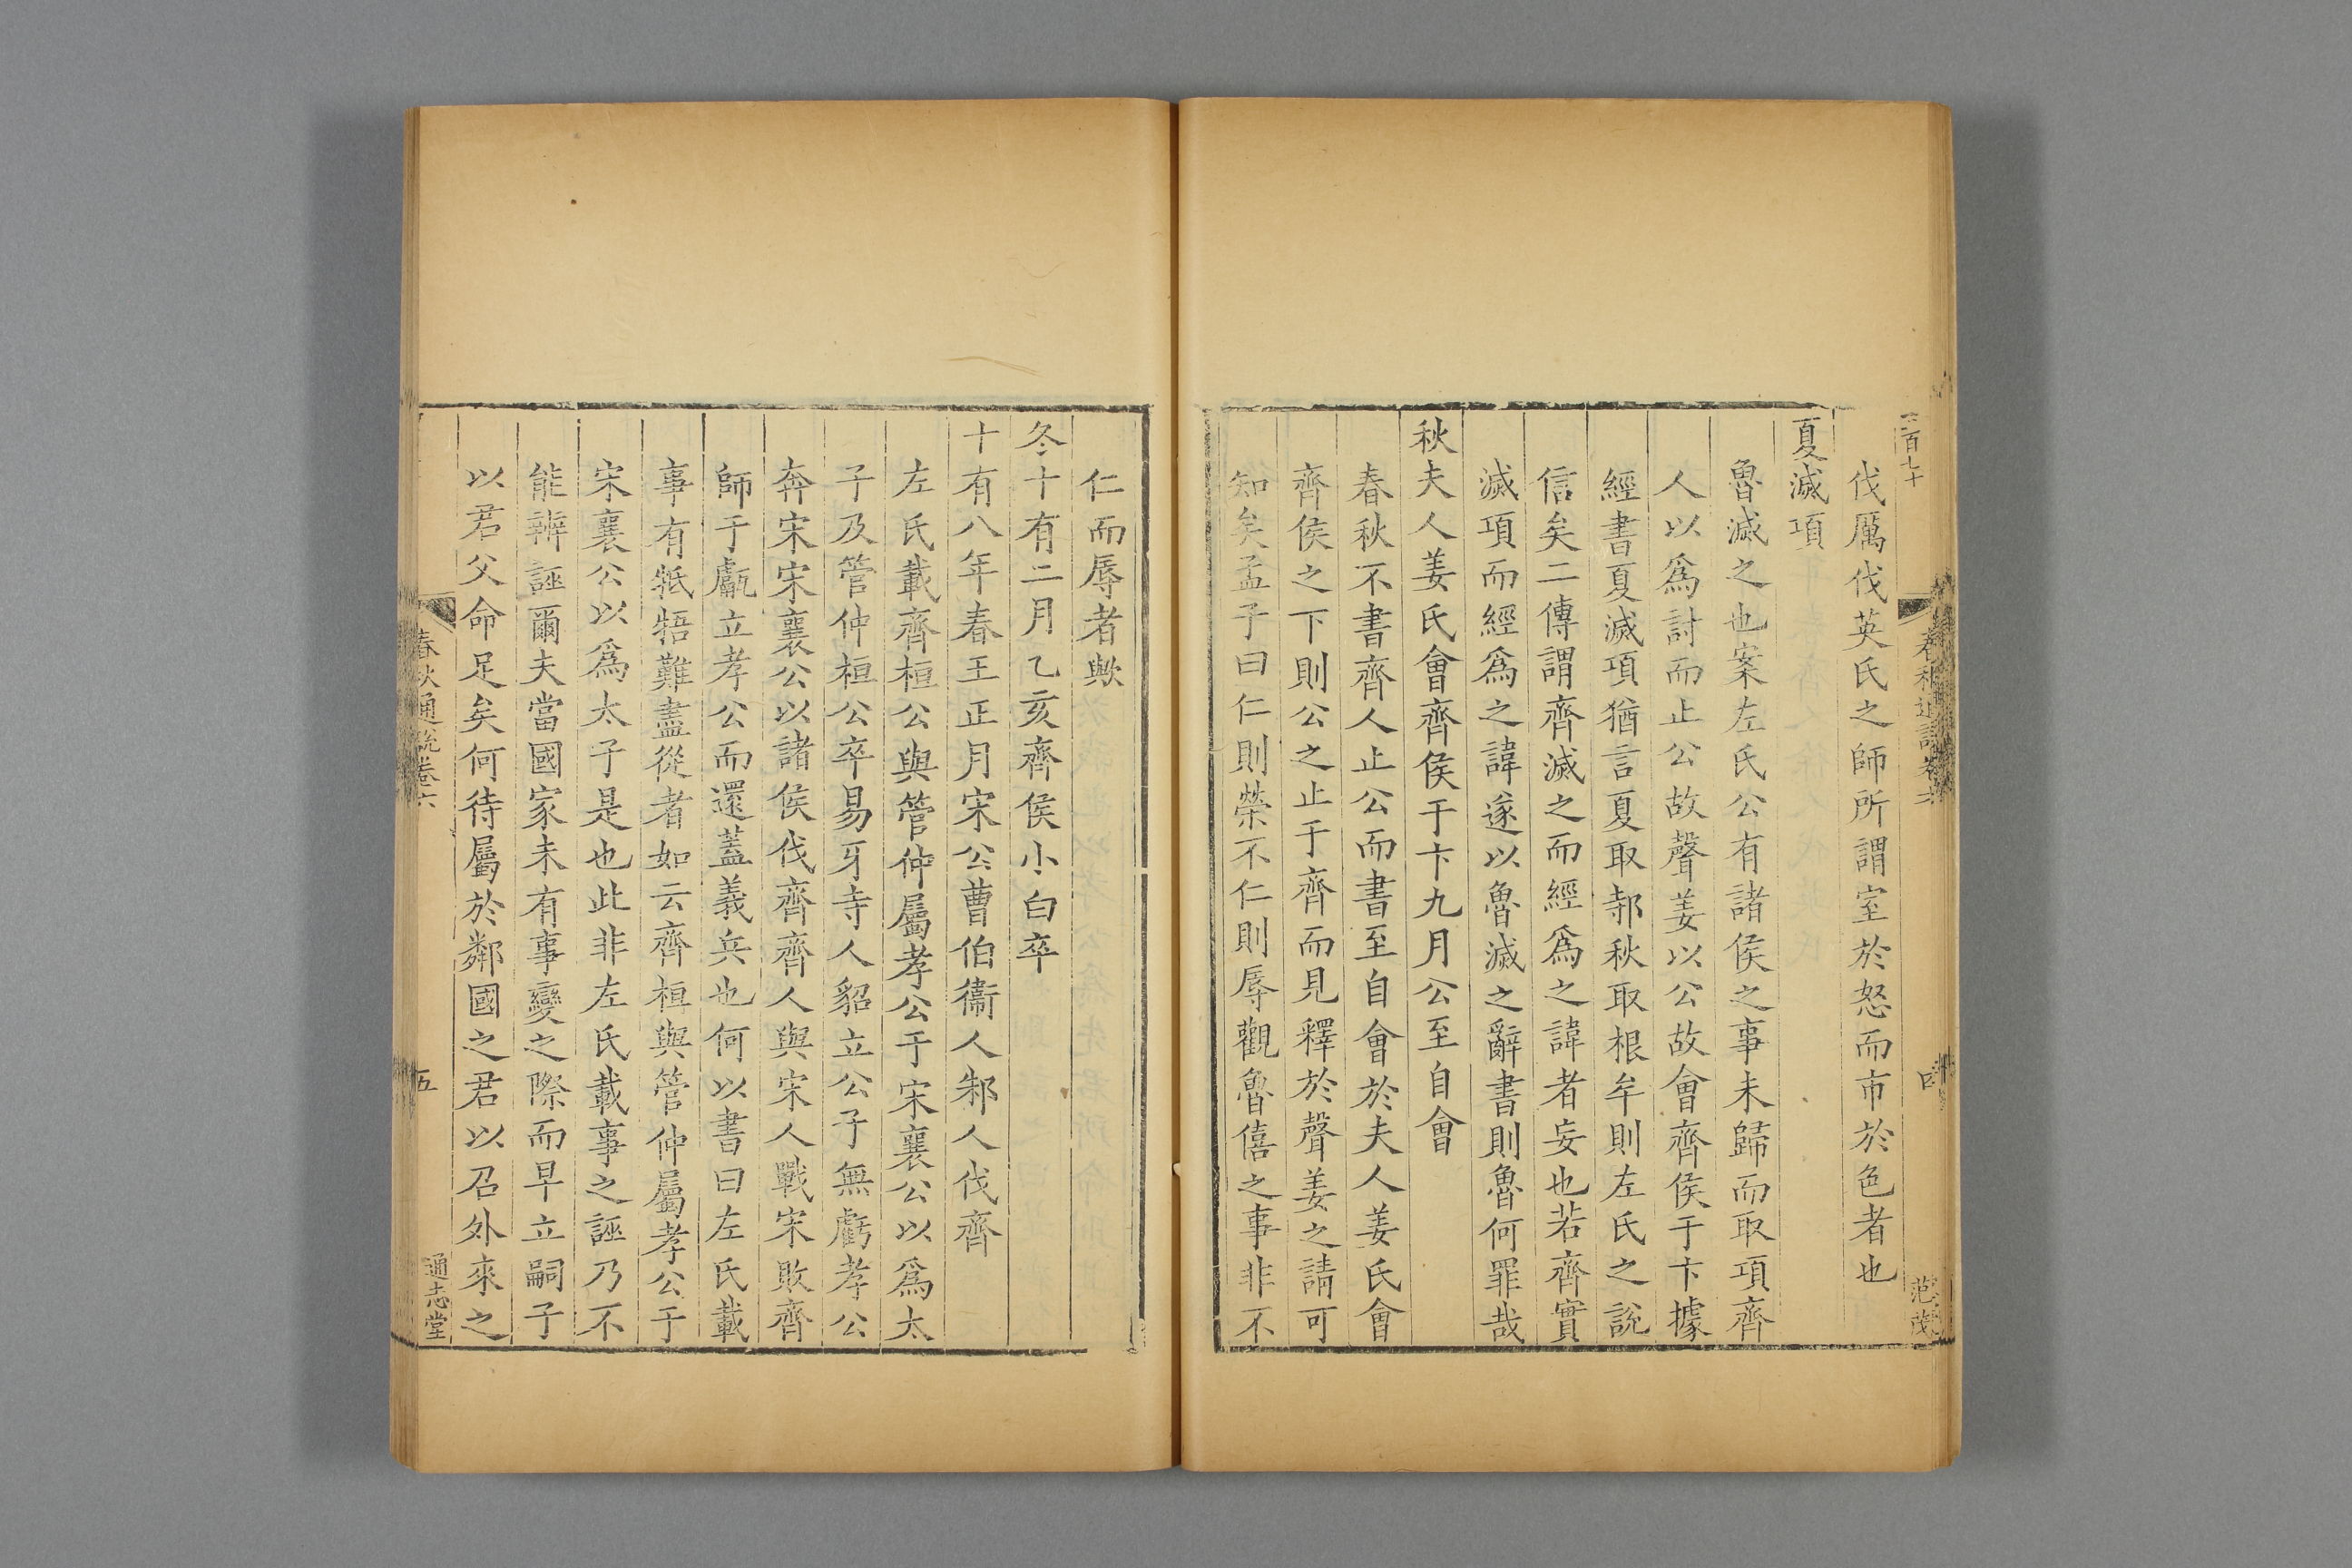 伐厲伐英氏之師所謂室於怒而市於色者也
夏滅項
魯滅之也案左氏公有諸侯之事未歸而取項齊
人以爲討而止公故聲姜以公故會齊侯于卞據
經書夏滅項猶言夏取邿秋取根牟則左氏之說
信矣二傳謂齊滅之而經爲之諱者妄也若齊實
滅項而經爲之諱遂以魯滅之辭書則魯何罪哉
秋夫人姜氏會齊侯于卞九月公至自會
春秋不書齊人止公而書至自會於夫人姜氏會
齊侯之下則公之止于齊而見釋於聲姜之請可
知矣孟子曰仁則榮不仁則辱觀魯僖之事非不
仁而辱者歟
冬十有二月乙亥齊侯小白卒
十有八年春王正月宋公曹伯衞人邾人伐齊
左氏載齊桓公與管仲屬孝公于宋襄公以爲太
子及管仲桓公卒易牙寺人貂立公子無虧孝公
奔宋宋襄公以諸侯伐齊齊人與宋人戰宋敗齊
師于甗立孝公而還蓋義兵也何以書曰左氏載
事有牴牾難盡從者如云齊桓與管仲屬孝公于
宋襄公以爲太子是也此非左氏載事之誣乃不
能辨誣爾夫當國家未有事變之際而早立嗣子
以君父命足矣何待屬於鄰國之君以召外來之
春秋通說卷六
五
通志堂
百七十
春秋通說卷六
四
范茂